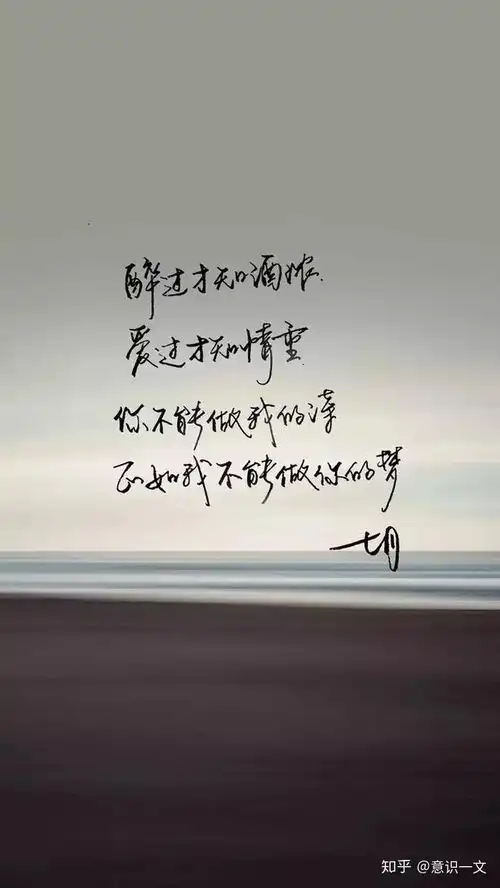 醉过才知酒浓
爱过才知情重
你不能做我的诗
正如我不能做你的梦
七月
知乎 @意识一文